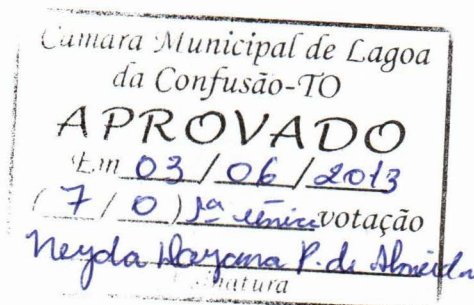 Camara Municipal de Lagoa
da Confusão-TO
APROVADO
Em 03 / 06 / 2013
( 7 / 0 ) 1ª única votação
Neyda Dayana P. de Almeida
Assinatura